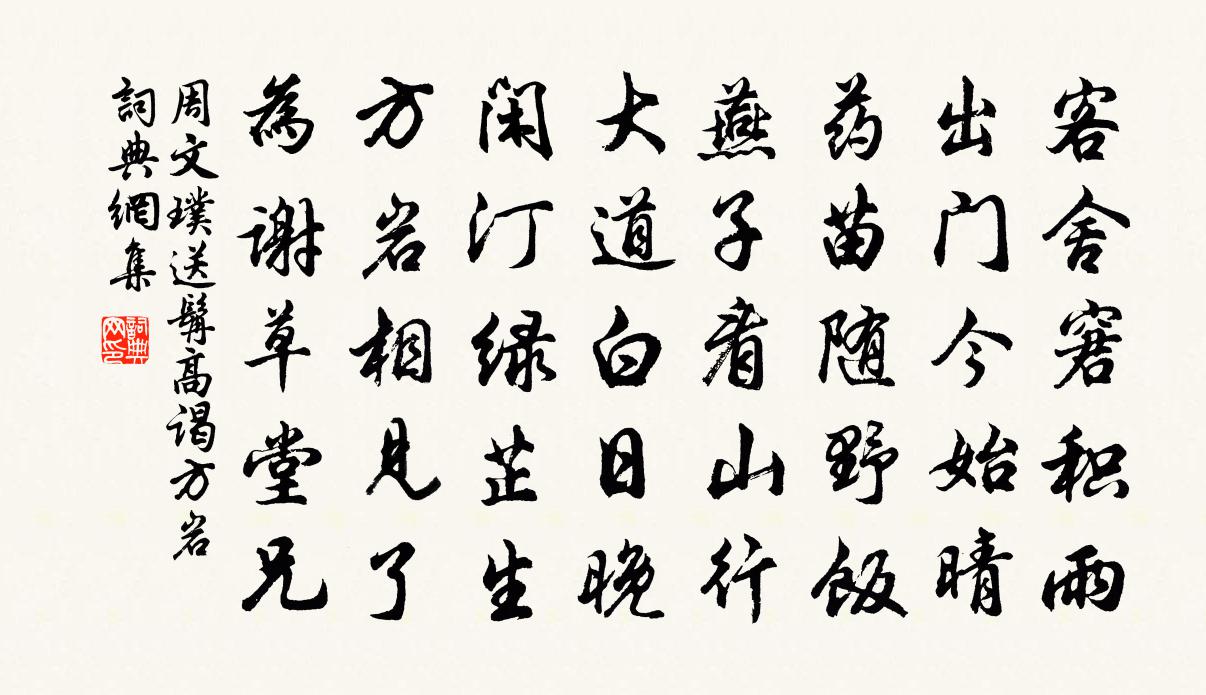 客舍窘积雨
出门今始晴
药苗随野饭
燕子看山行
大道白日晚
闲汀绿芷生
方岩相见了
為谢草堂兄
周文璞送髯高谒方岩
詞典網集
詞典网印